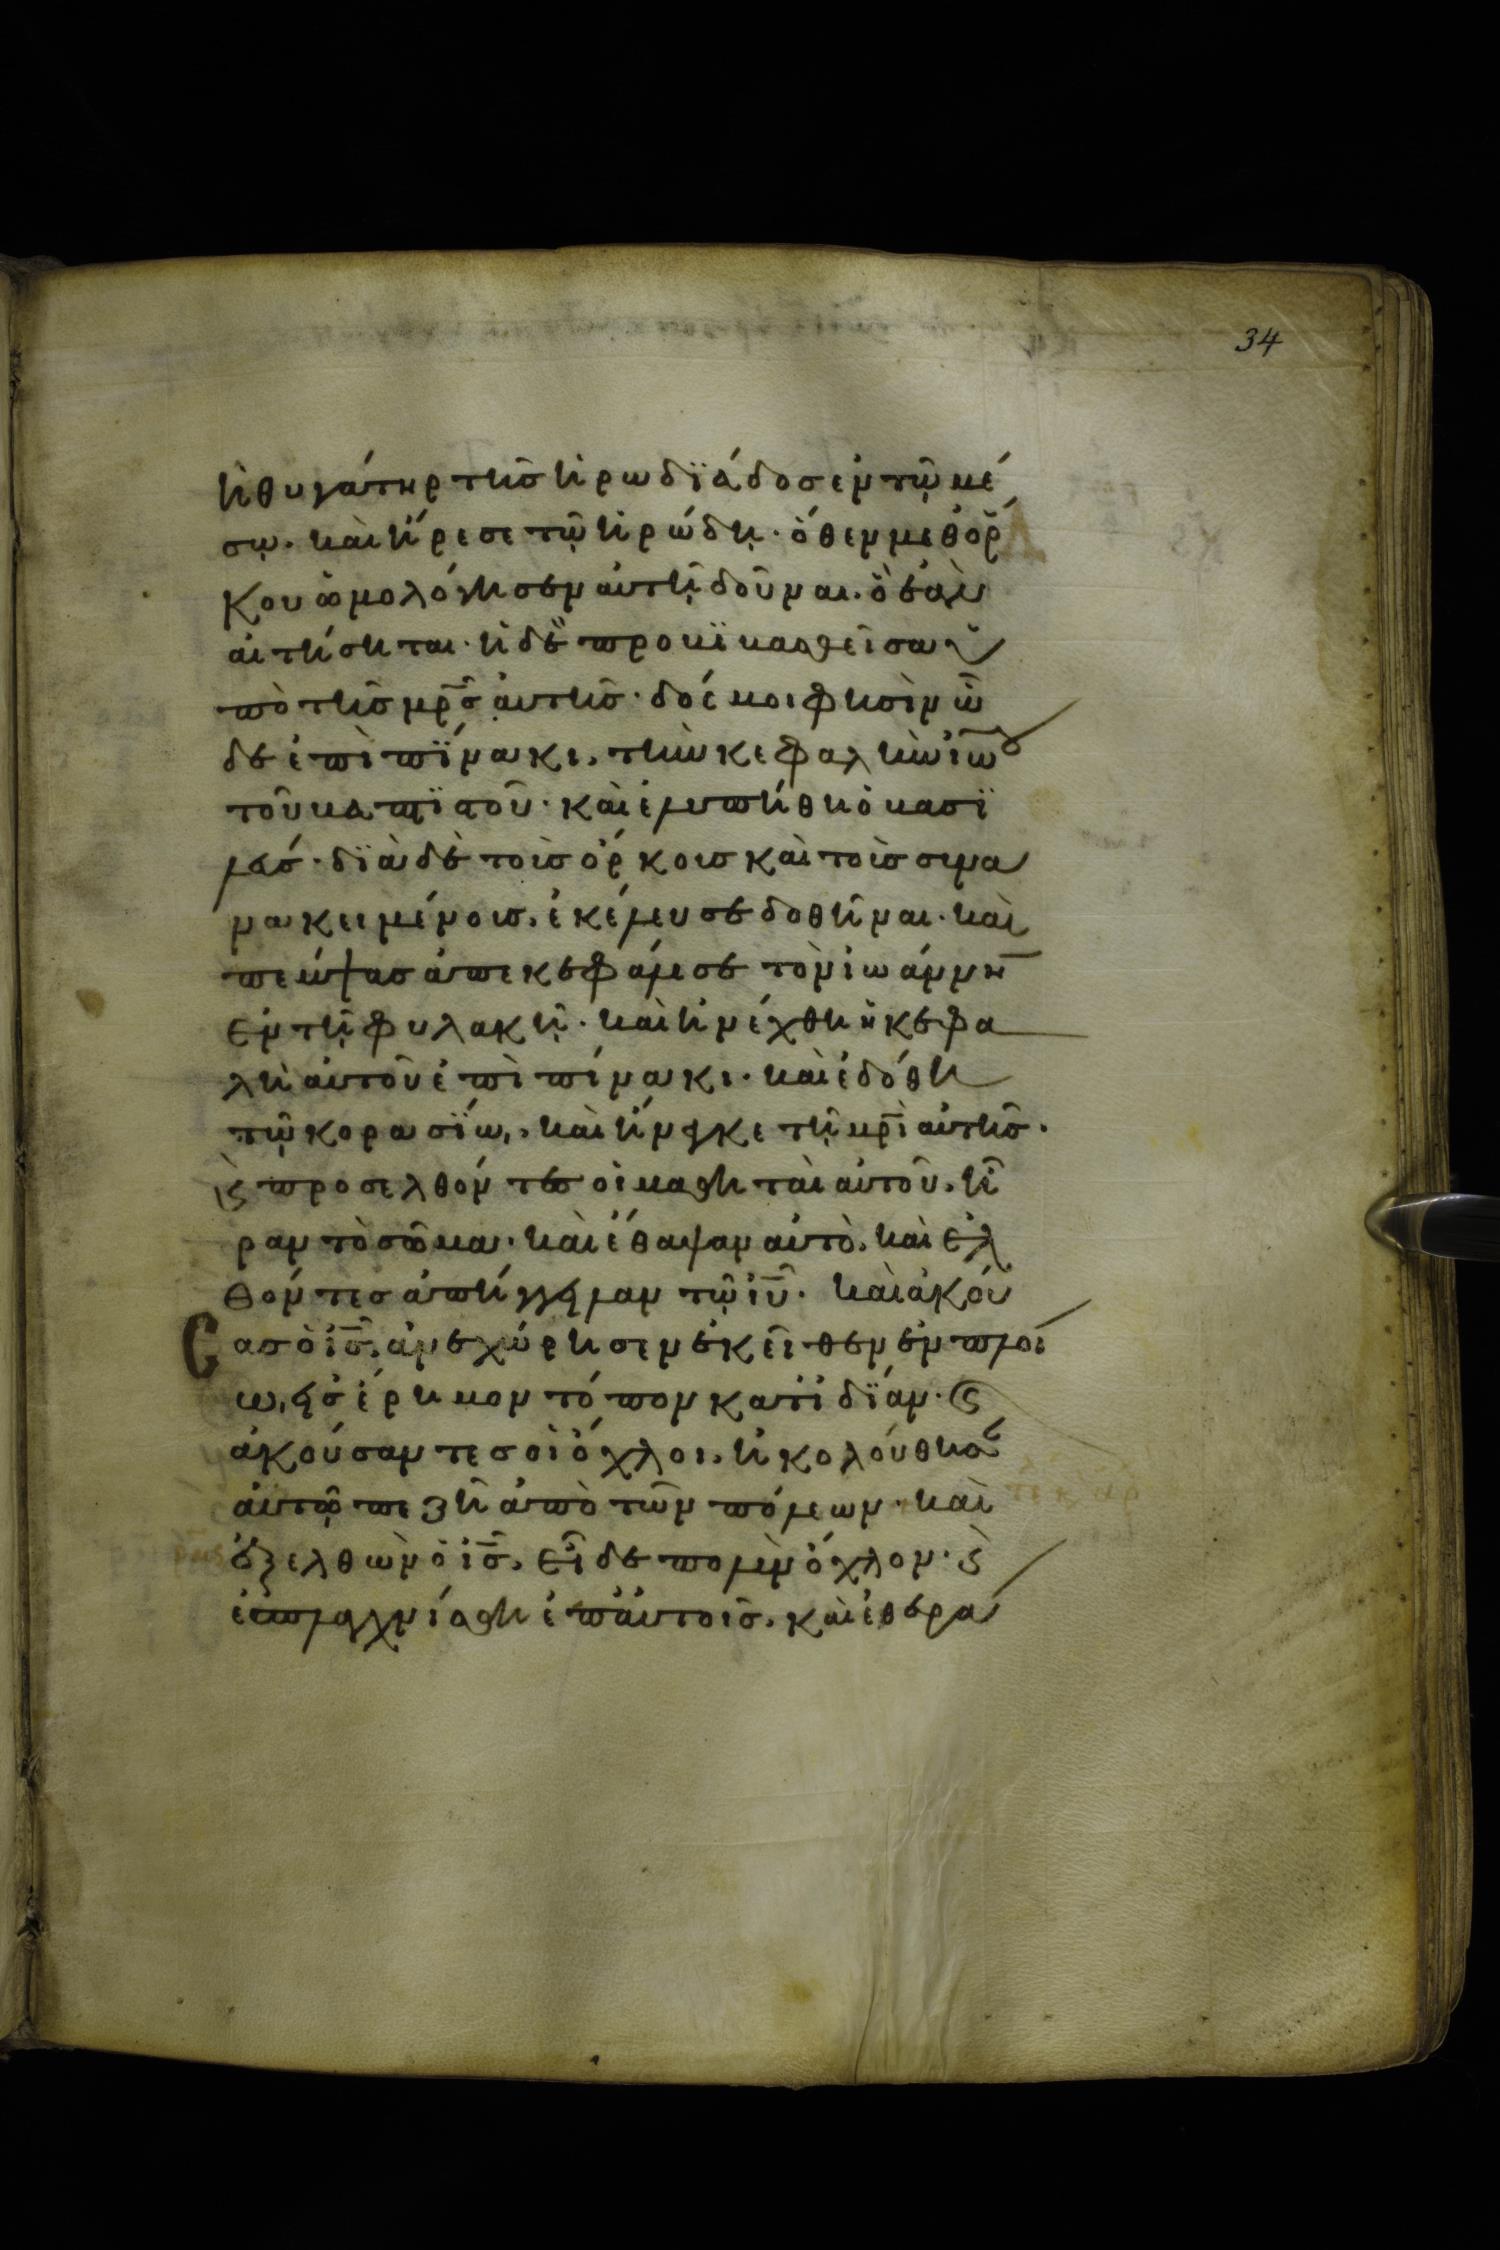 34
ἡ θυγάτηρ τῆς ἡρωδϊάδος ἐν τῷ μέ
σῳ· καὶ ἤρεσε τῷ ἡρώδῃ· ὅθεν μεθ ὅρ
κου ὡμολόγησεν αὐτῇ δοῦναι· ὃ ἐὰν
αἰτήσηται· ἡ δὲ προβϊβασθεῖσα ὑ
πὸ τῆς μρ̅ς αὐτῆς· δός μοι φησὶν ὧ
δε ἐπὶ πϊνακι, τὴν κεφαλὴν ἰω̅
τοῦ βαπτϊστοῦ· καὶ ἐλυπήθη ὁ βασϊ
λεύς· δϊὰ δὲ τοὺς ὅρκους καὶ τοὺς συνα
νακειμένους, ἐκέλευσε δοθῆναι· καὶ
πέμψας ἀπεκεφάλισε τὸν ἰωάννη̅
ἐν τῇ φυλακῇ· καὶ ἠνέχθη ἡ κεφα
λὴ αὐτοῦ ἐπὶ πίνακι· καὶ ἐδόθη
τῷ κορασϊῳ, καὶ ἤνεγκε τῇ μρ̅ὶ αὐτῆς·
ϗ προσελθόντες οἱ μαθηταὶ αὐτοῦ, ἦ
ραν τὸ σῶμα· καὶ ἔθαψαν αὐτὸ, καὶ ἐλ
θόντες ἀπήγγειλαν τῷ ἰυ̅· καὶ ἀκού
σας ὁ ἰς̅, ἀνεχώρησεν ἐκεῖθεν ἐν πλοί
ῳ, εἰς ἔρημον τόπον κατ ἰδϊαν· ϗ
ἀκούσαντες οἱ ὄχλοι, ἠκολούθησα̅
αὐτῷ πεζῇ ἀπὸ τῶν πόλεων· καὶ
ἐξελθὼν ὁ ἰς̅, εἶδε πολὺν ὄχλον· ϗ
ἐσπλαγχνίσθη ἐπ αὐτοῖς, καὶ ἐθερά